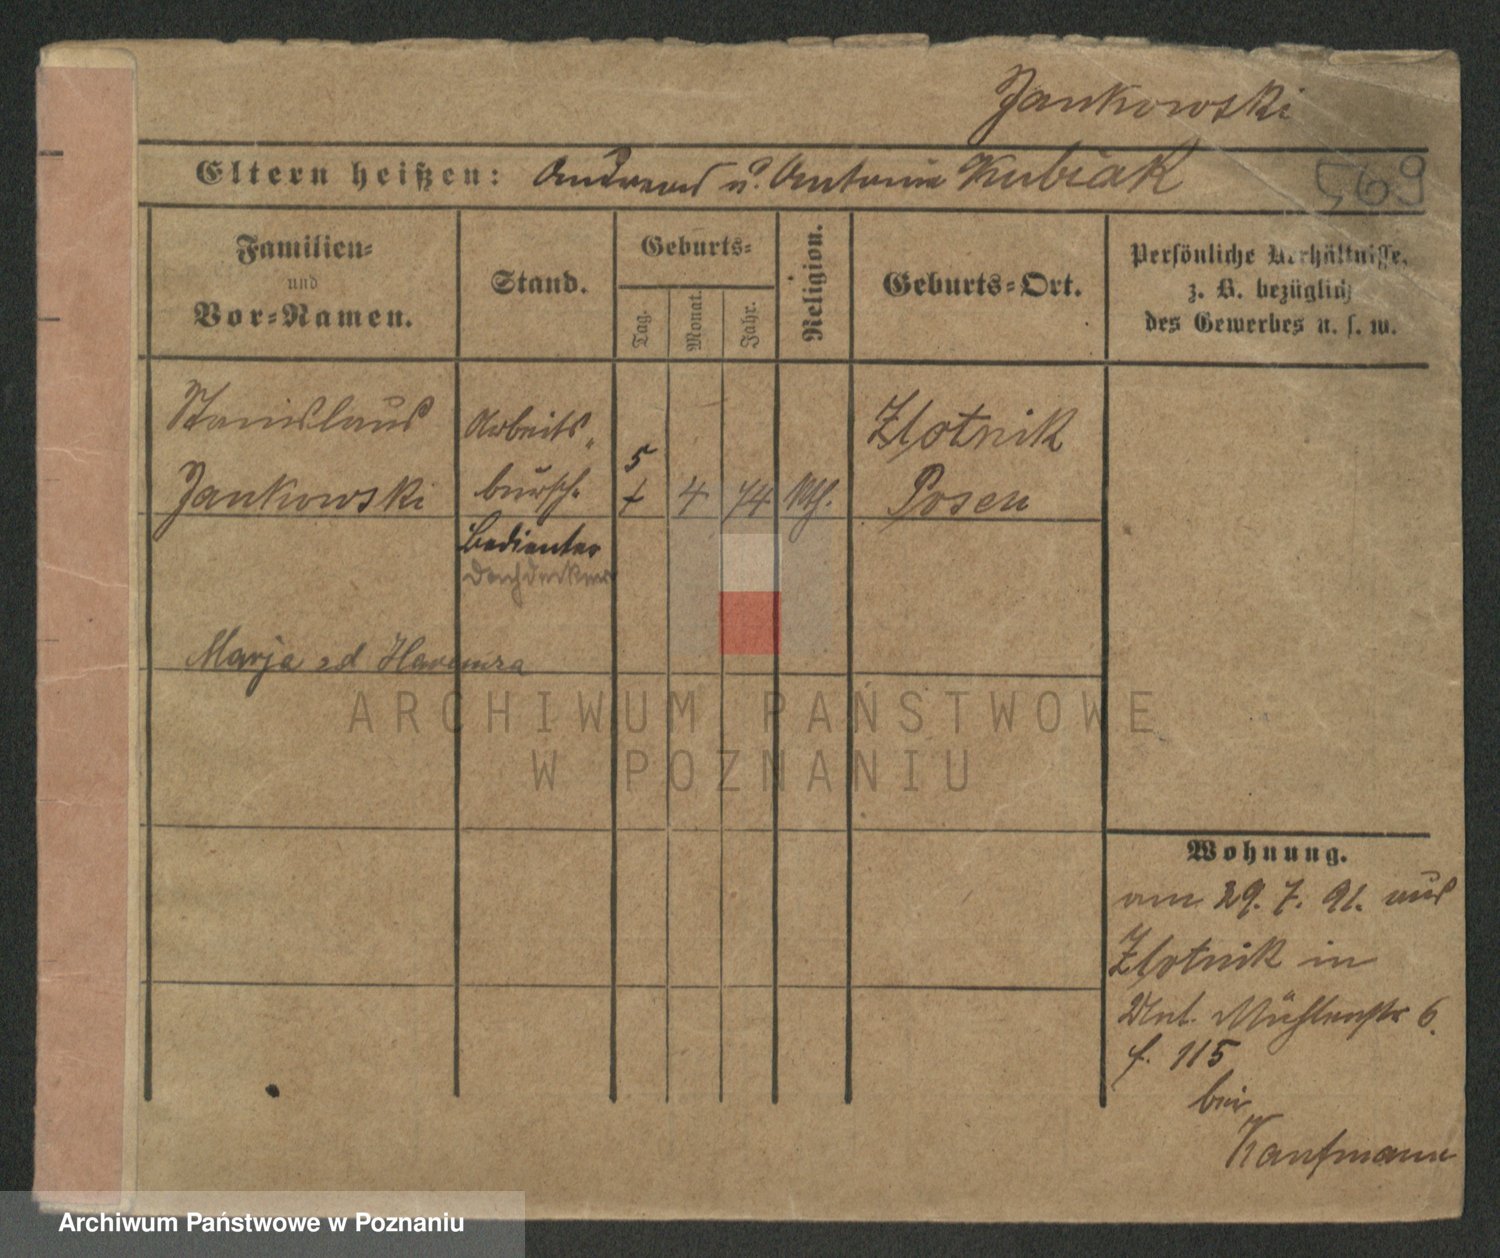 Jankowski
Eltern heißen: Andreas u. Antonie Kubiak
569
Familien-
und
Vor-Namen.
Stand.
Geburts-
Tag.
Monat.
Jahr.
Religion.
Geburts-Ort.
Persönliche Verhältnisse,
z. B. bezüglich
des Gewerbes u. s. w.
Stanislaus
Jankowski
Arbeits-
bursch.
Bedienter
Dachdecker
5
4
74
Kth.
Zlotnik
Posen
Marja zd
ARCHIWUM PAŃSTWOWE
W POZNANIU
Wohnung.
am 29. 7. 91. aus
Zlotnik in
Mühlenstr 6.
f. 115
bei
Kaufmann
Archiwum Państwowe w Poznaniu